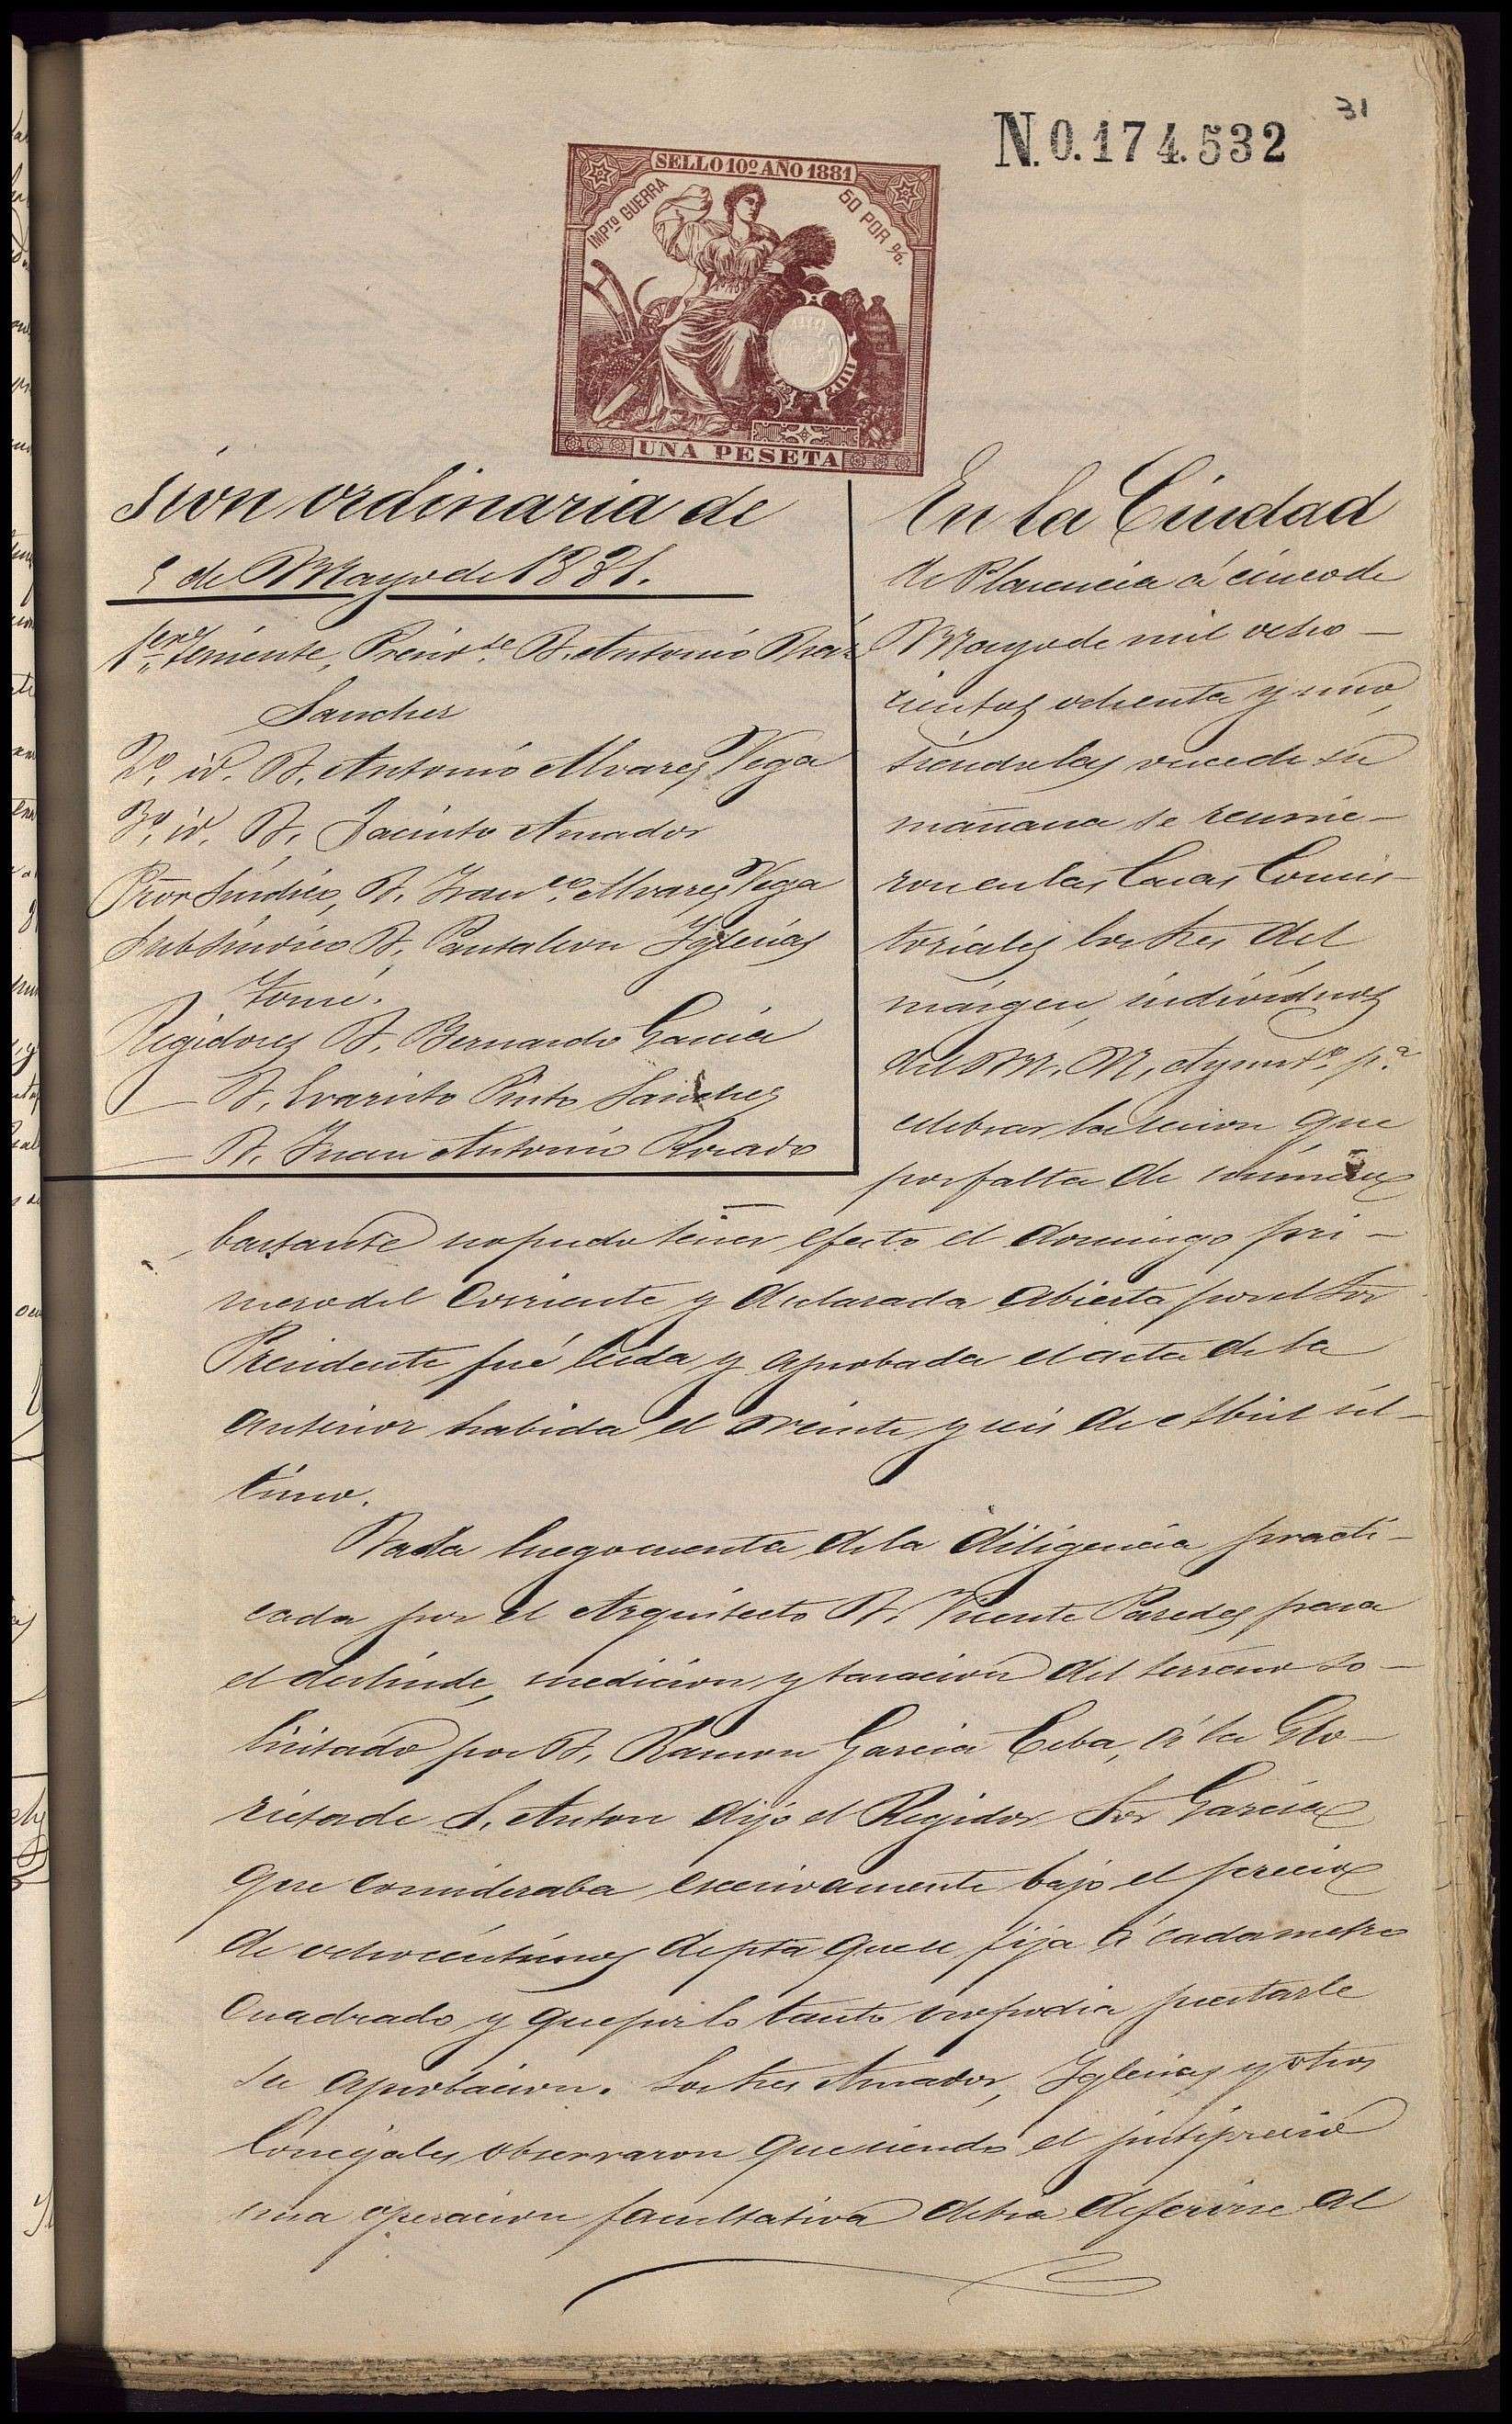 31
N.0.174.532
SELLO 10º AÑO 1881
IMPTO GUERRA
50 POR %.
UNA PESETA
sion ordinaria de
5 de Mayo de 1881.
1er. Teniente, Presidte. D. Antonio Diaz
Sanchez
2º. id. D. Antonio Alvarez Vega
3º. id. D. Jacinto Amador
Pror Sindico, D. Franco. Alvarez Vega
Subsindico D. Pantaleon Yglesias
Tomé.
Regidores D. Bernardo Garcia
— D. Evaristo Pinto Sanchez
— D. Juan Antonio Rosado
En la Ciudad
de Plasencia á cinco de
Mayo de mil ocho —
cientos ochenta y uno,
siendo las once de su
mañana se reunie —
ron en las Casas Consis —
toriales los Sres del
márgen, indivíduos
del M. M. Ayuntº. pª.
celebrar la sesion que
por falta de número
bastante no pudo tener efecto el domingo pri —
mero del corriente y declarada abierta por el Sor
Presidente fué leida y aprobada el acta de la
anterior habida el veinte y seis de Abril úl —
timo.
Dada luego cuenta de la diligencia practi —
cada por el Arquitecto D. Vicente Paredes para
el deslinde, medicion y tasacion del terreno so —
licitado por D. Ramon Garcia Ceba, á la Glo —
rieta de S. Anton dijo el Regidor Sor Garcia
que consideraba escesivamente bajo el precio
de ocho céntimos de pta que se fija á cada metro
cuadrado y que por lo tanto no podia prestarle
su aprobacion. Los Sres Amador, Yglesias y otros
Concejales observaron que siendo el justiprecio
una operacion facultativa debia deferirse al